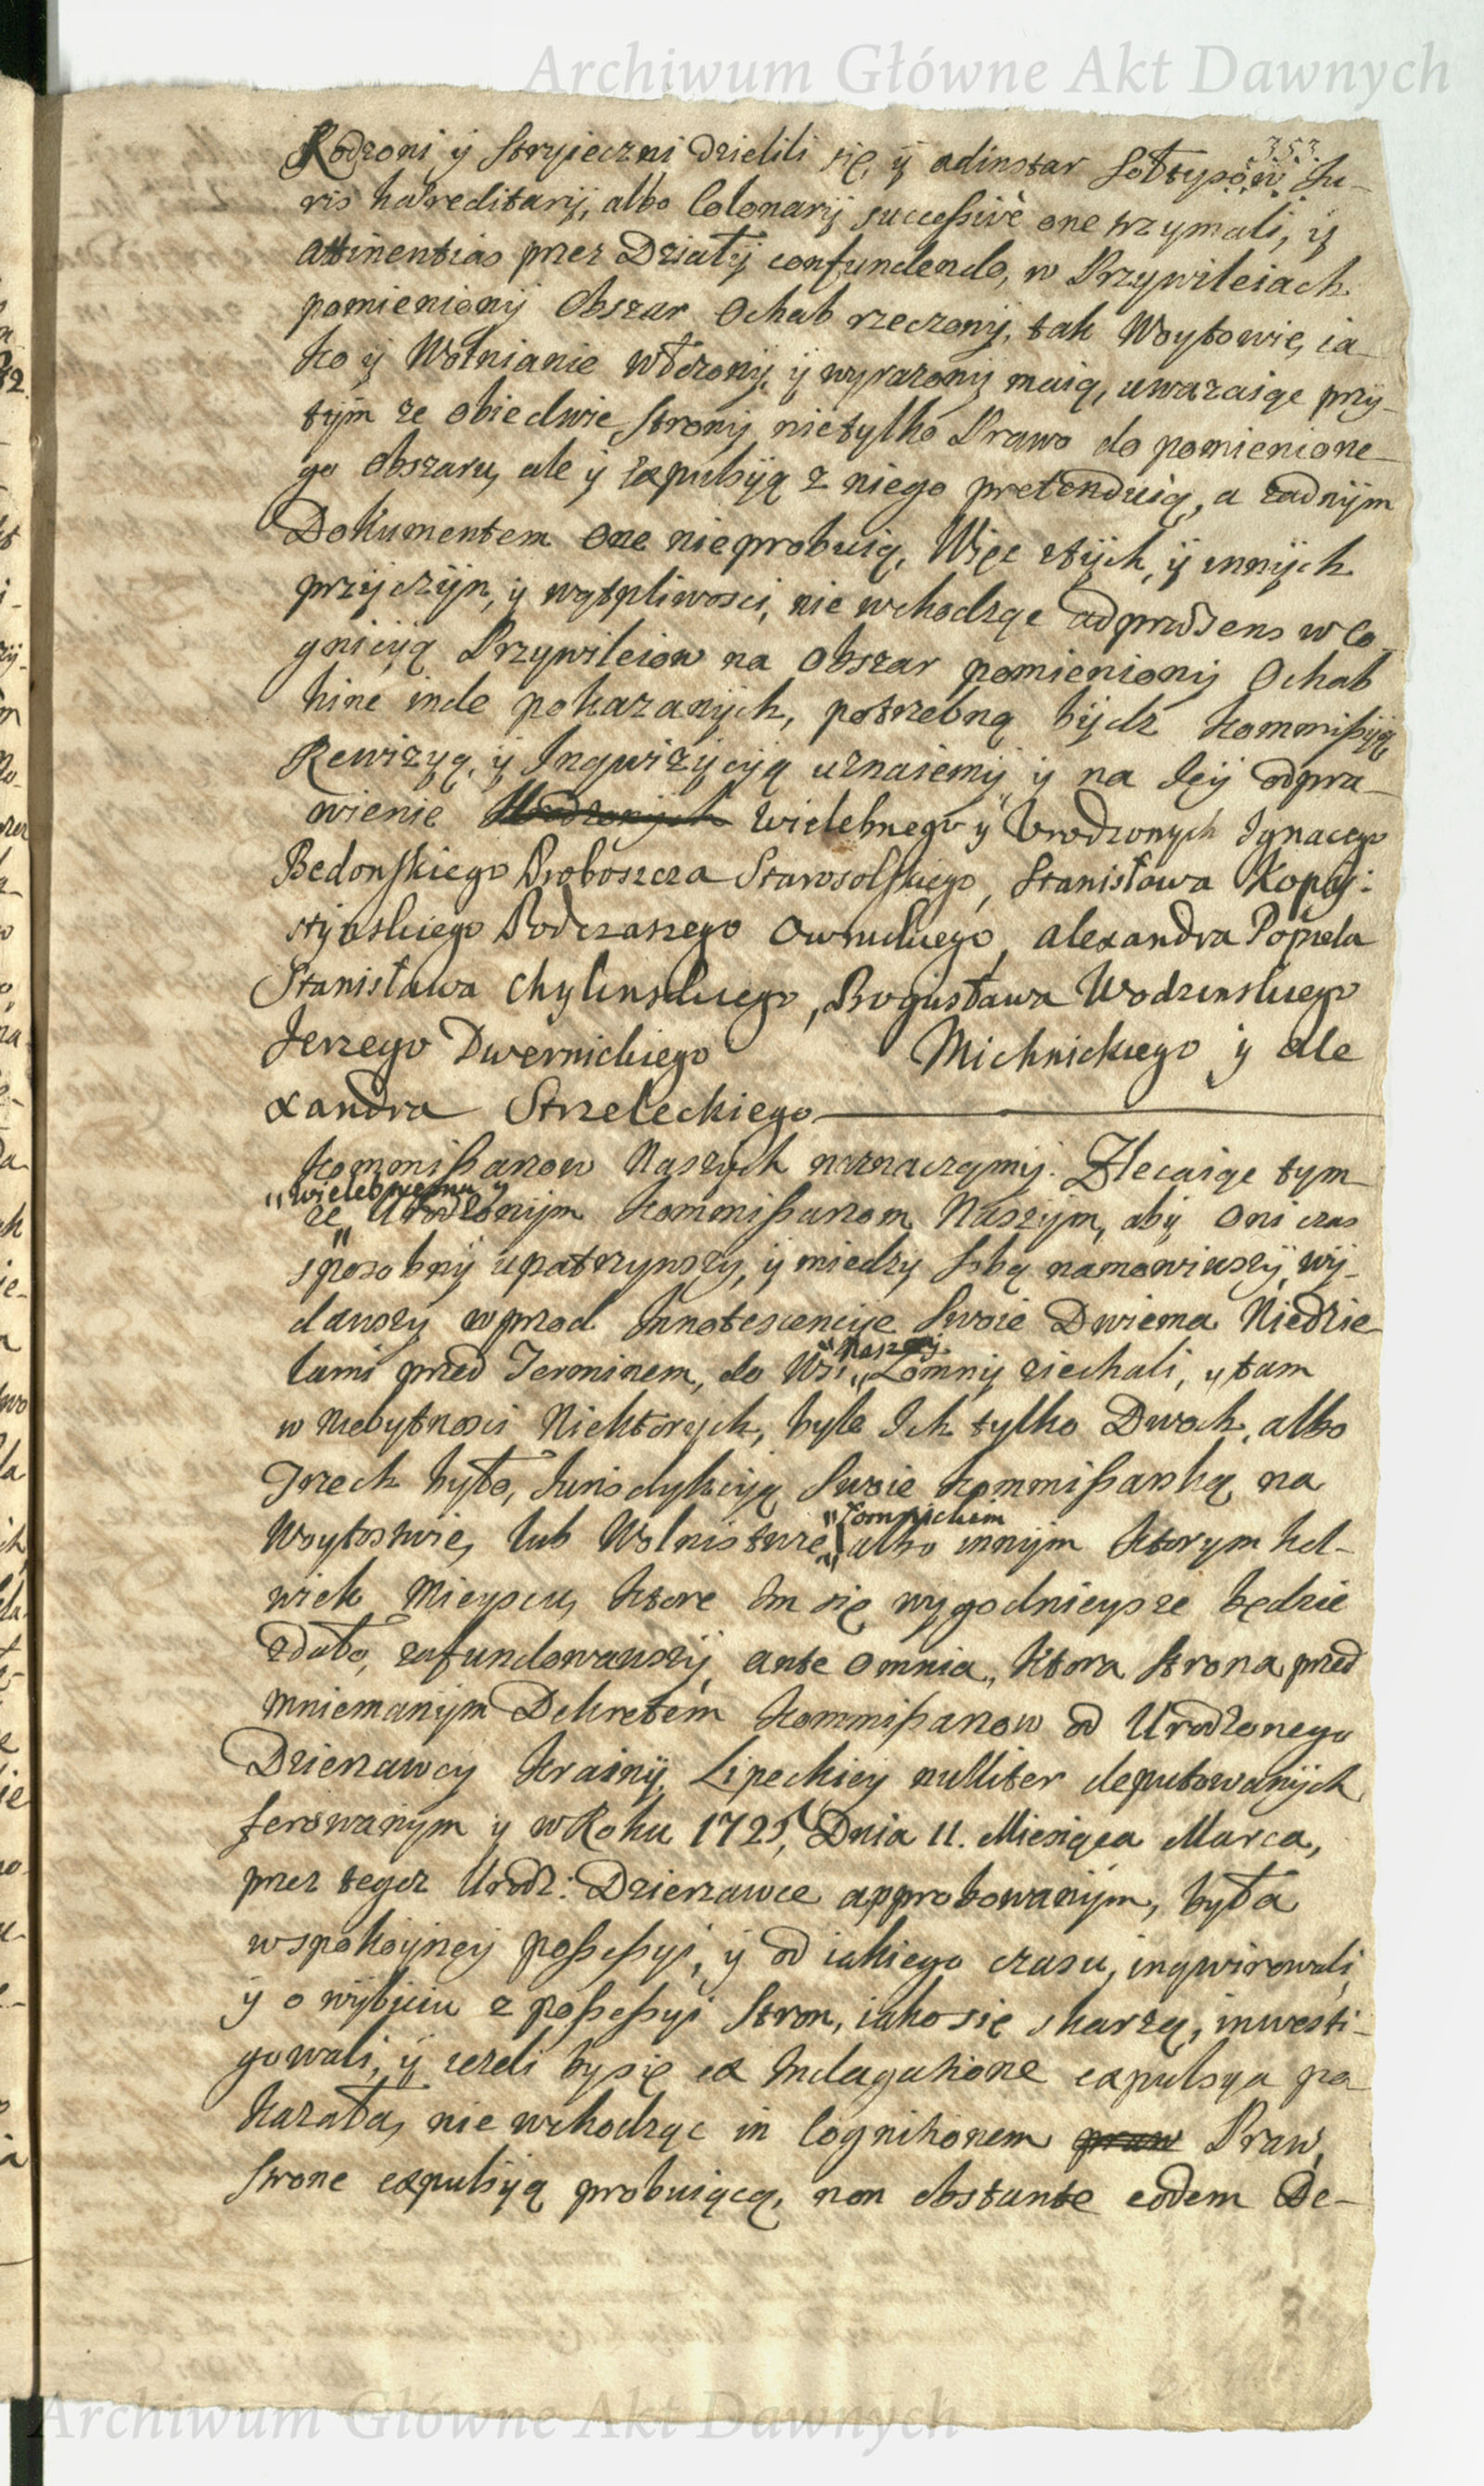 Archiwum Główne Akt Dawnych
353
Rodzoni ÿ Stryieczni dzielili się, ÿ adinstar Sołtysów Ju-
ris hæreditarÿ, albo Colonarÿ successivè one trzymali, ÿ
attinentias przez Działÿ confundendo, w Przywileiach
pomienionÿ Obszar Ochab rzeczonÿ, tak Woytowie, ia
ko ÿ Wolnianie włożonÿ, ÿ wyrażonÿ maią, uważaiąc prżÿ-
tÿm że obiedwie Stronÿ nietylko Prawo do pomienione-
go obszaru, ale ÿ expulsÿą z niego pretenduią, a żadnÿm
Dokumentem one nieprobuią, Więc ztÿch, ÿ innÿch
przÿczÿn, ÿ wątpliwosci, nie wchodząc adpræsens w Co
gnicÿą Przywileiow na Obszar pomienionÿ Ochab
hinc inde pokazanÿch, potrzebną bÿdź Kommissÿą,
Rewizyą, ÿ Inqwizÿcyą uznaiemÿ, ÿ na Ieÿ odpra-
wienie Urodzonÿch Wielebnego ÿ Urodzonych Ignacego
Bedonskiego Proboszcza Starosolskiego, Stanisława Kopÿ:
stÿnskiego Podczaszego Owruckiego, alexandra Popiela
Stanisława Chylinskiego, Bogusława Wodzinskiego
Jerzego Dwernickiego Michnickiego ÿ ale
xandra Strzeleckiego
Kommissarzow Naszÿch naznaczamÿ. Zlecaiąc tym-
"Wielebnemu ÿ
że " Urodzonÿm Kommissarzom Naszÿm, abÿ Oni czas
sposobnÿ upatrzywszy, ÿ miedzy sobą namowiwszÿ, wÿ-
dawszy wprzod Innotescencije Swoie Dwiema Niedzie-
"Naszeÿ
lami przed Terminem, do Wsi " Łomnÿ ziechali, ÿ tam
w Niebytnosci Niektorych, byle Ich tylko Dwoch, albo
Trzech było, Jurisdykcÿą Swoie Kommissarską na
"Łomnickim
Woytostwie, lub Wolnistwie " albo innÿm ktorym kol-
wiek Mieyscu, ktore Im się wygodnieysze będzie
zdało, zafundowawszÿ, ante omnia, Ktora Strona przed
mniemanÿm Dekretem Kommissarzow od Urodzonego
Dzierzawcy Krainÿ Lipeckiey nulliter deputowanÿch
ferowanym ÿ w Roku 1725, Dnia 11. Miesiąca Marca,
przez tegoż Urodz: Dzierzawce approbowanÿm, była
wspokoyneÿ possessyi, ÿ od iakiego czasu, inqwirowali,
ÿ o wÿbiciu z possessyi Stron, iako się skarżą, inwesti-
gowali, ÿ ieżeli bysię ex Indagatione expulsya po
kazała, nie wchodząc in Cognitionem praw Praw,
Strone expulsÿą probuiącą, non obstante eodem De-
Archiwum Główne Akt Dawnych